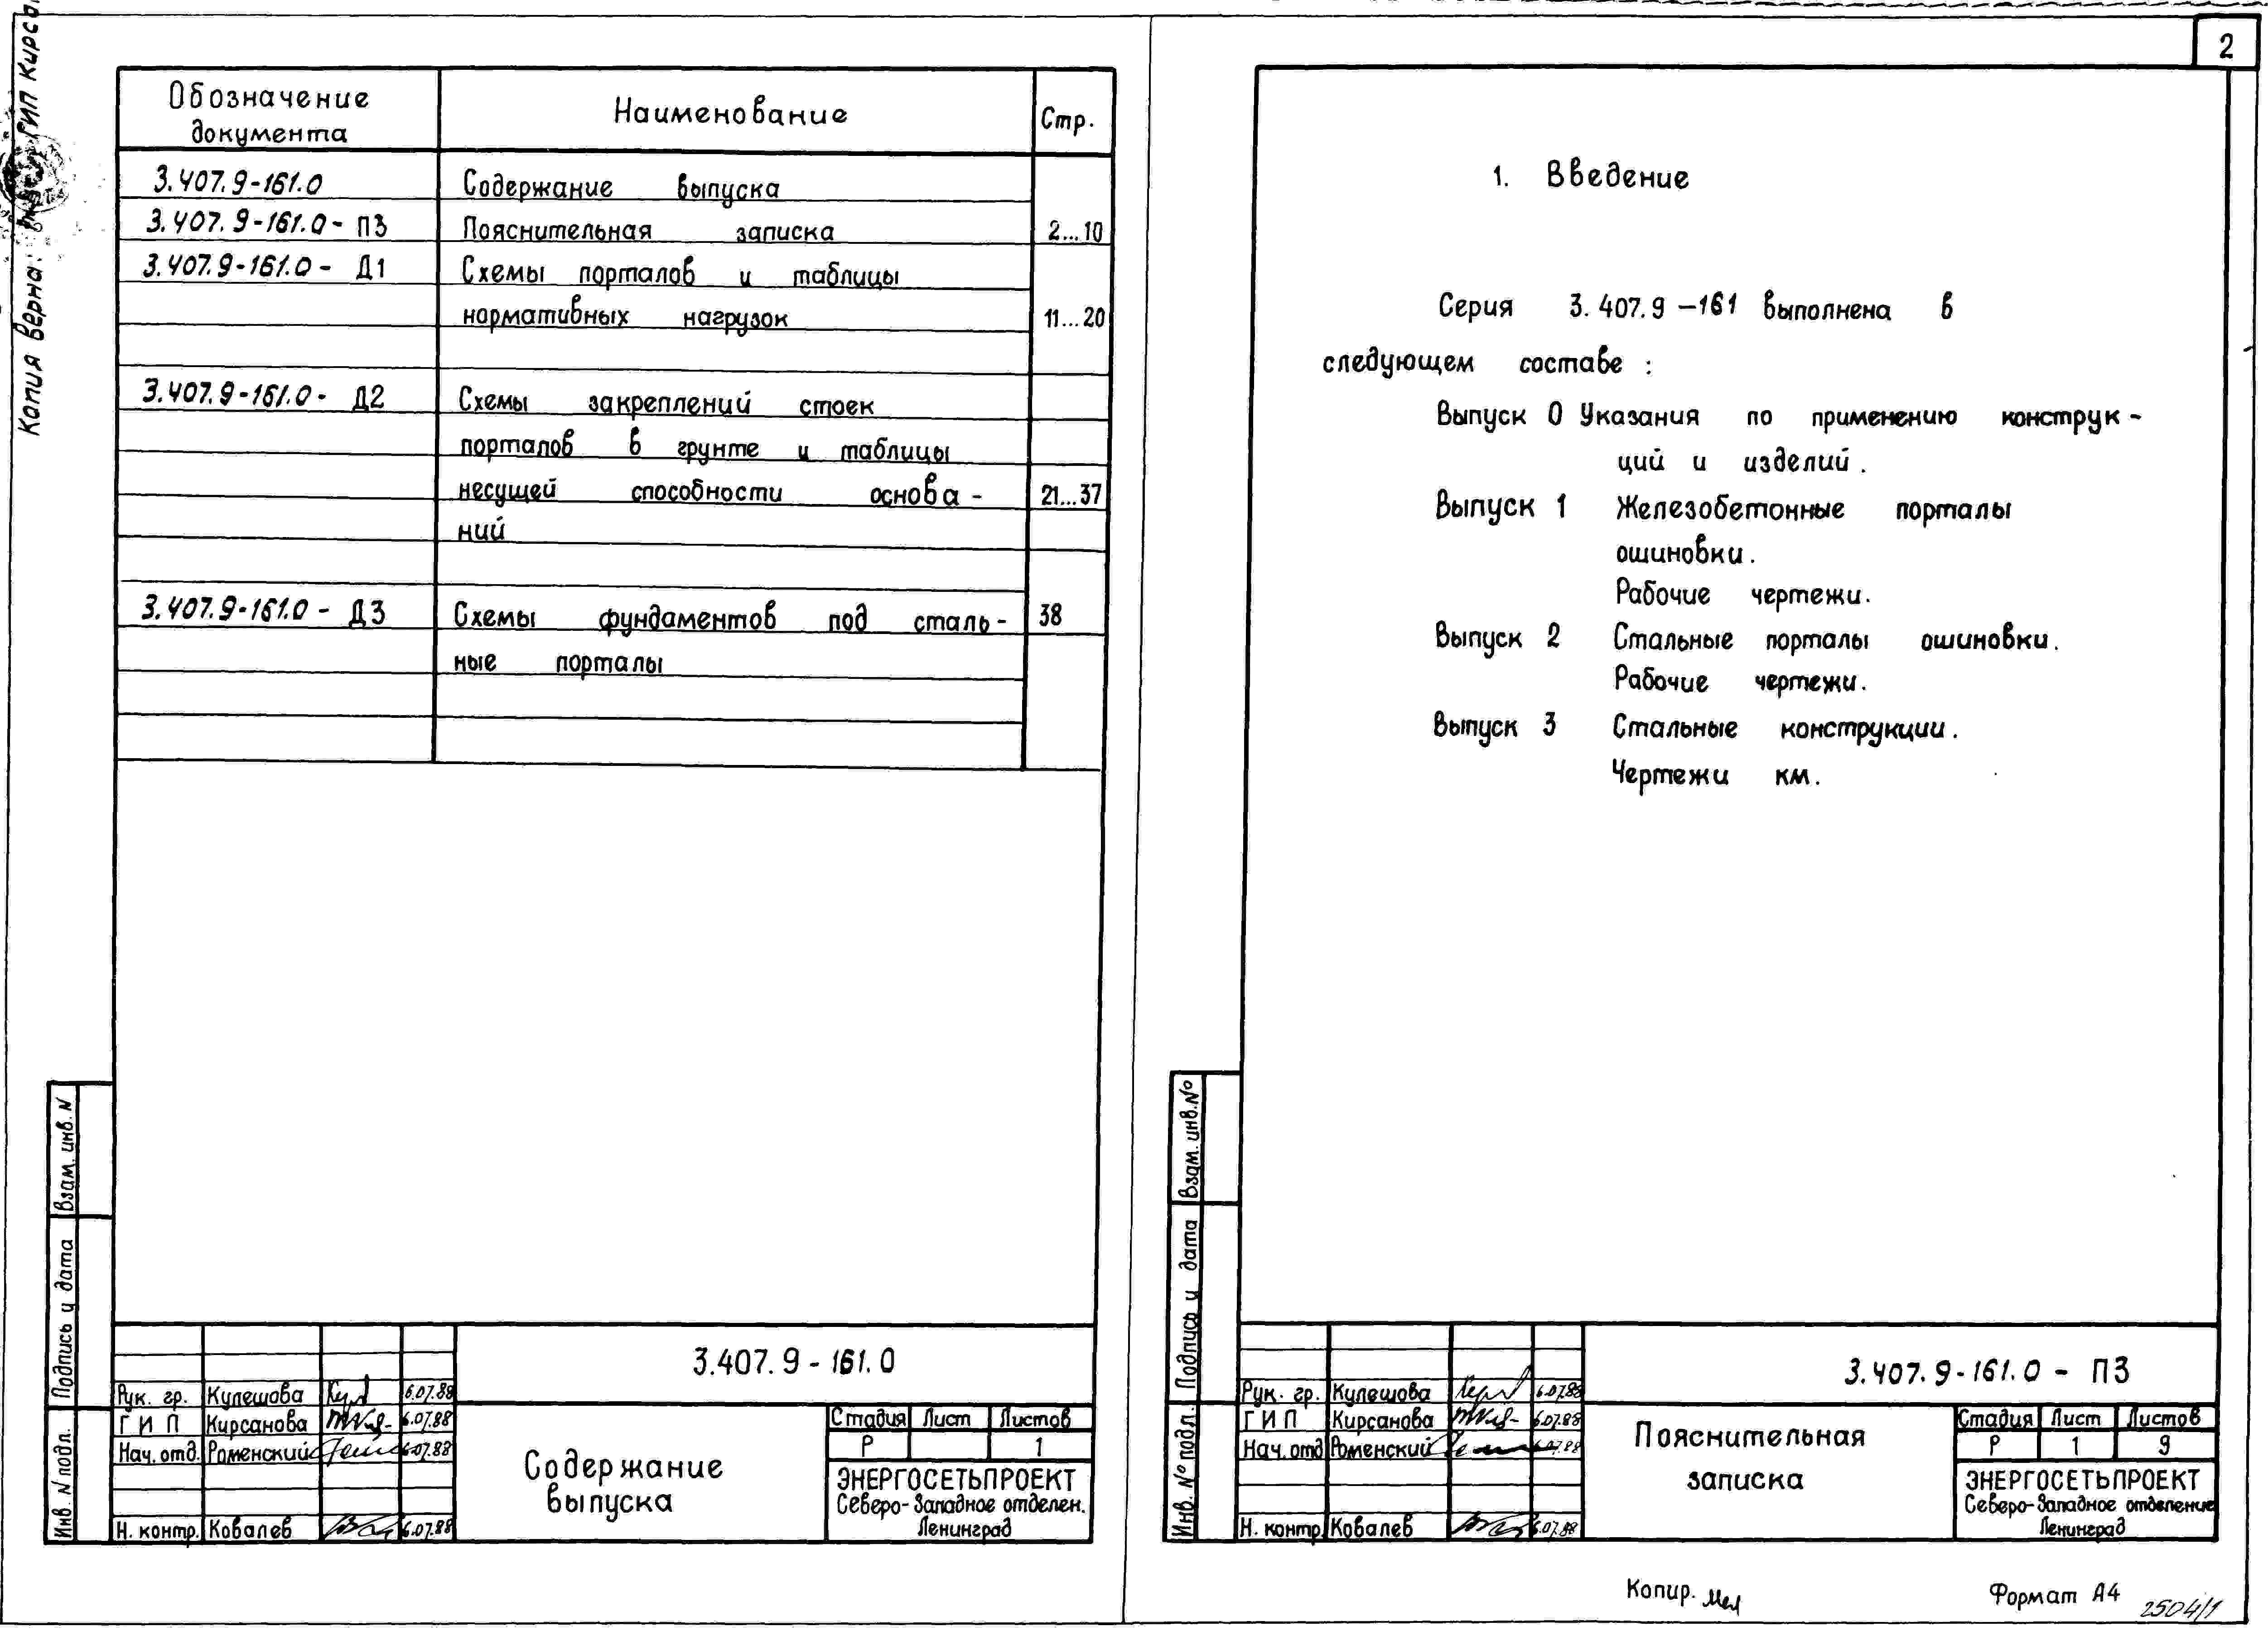 Копия верна:
Обозначение документа
Наименование
Стр.
3.407.9-161.0 Содержание выпуска
3.407.9-161.0- ПЗ Пояснительная записка 2...10
3.407.9-161.0- Д1 Схемы порталов и таблицы
нормативных нагрузок 11...20
3.407.9-161.0- Д2 Схемы закреплений стоек
порталов в грунте и таблицы
несущей способности основа- 21...37
ний
3.407.9-161.0- Д3 Схемы фундаментов под сталь- 38
ные порталы
Взам. инв. N
Подпись и дата
Инв. N подл.
3.407.9-161.0
Рук. гр. Кулешова 6.07.88
ГИП Кирсанова 6.07.88
Нач. отд. Роменский 6.07.88
Н. контр. Ковалев 6.07.88
Содержание
выпуска
Стадия Лист Листов
Р 1
ЭНЕРГОСЕТЬПРОЕКТ
Северо-Западное отделен.
Ленинград
2
1. Введение
Серия 3.407.9-161 выполнена в
следующем составе:
Выпуск 0 Указания по применению конструк-
ций и изделий.
Выпуск 1 Железобетонные порталы
ошиновки.
Рабочие чертежи.
Выпуск 2 Стальные порталы ошиновки.
Рабочие чертежи.
Выпуск 3 Стальные конструкции.
Чертежи км.
Взам. инв. №
Подпись и дата
Инв. № подл.
3.407.9-161.0-ПЗ
Рук. гр. Кулешова 6.07.88
ГИП Кирсанова 6.07.88
Нач. отд Роменский 6.07.88
Н. контр. Ковалев 6.07.88
Пояснительная
записка
Стадия Лист Листов
Р 1 9
ЭНЕРГОСЕТЬПРОЕКТ
Северо-Западное отделение
Ленинград
Копир.
Формат А4
2504/1